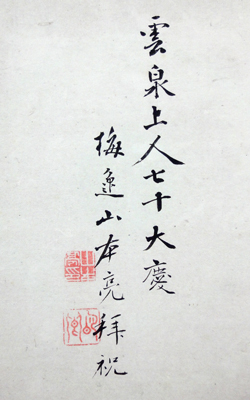 雲泉上人七十大慶
梅逸山本亮拝祝